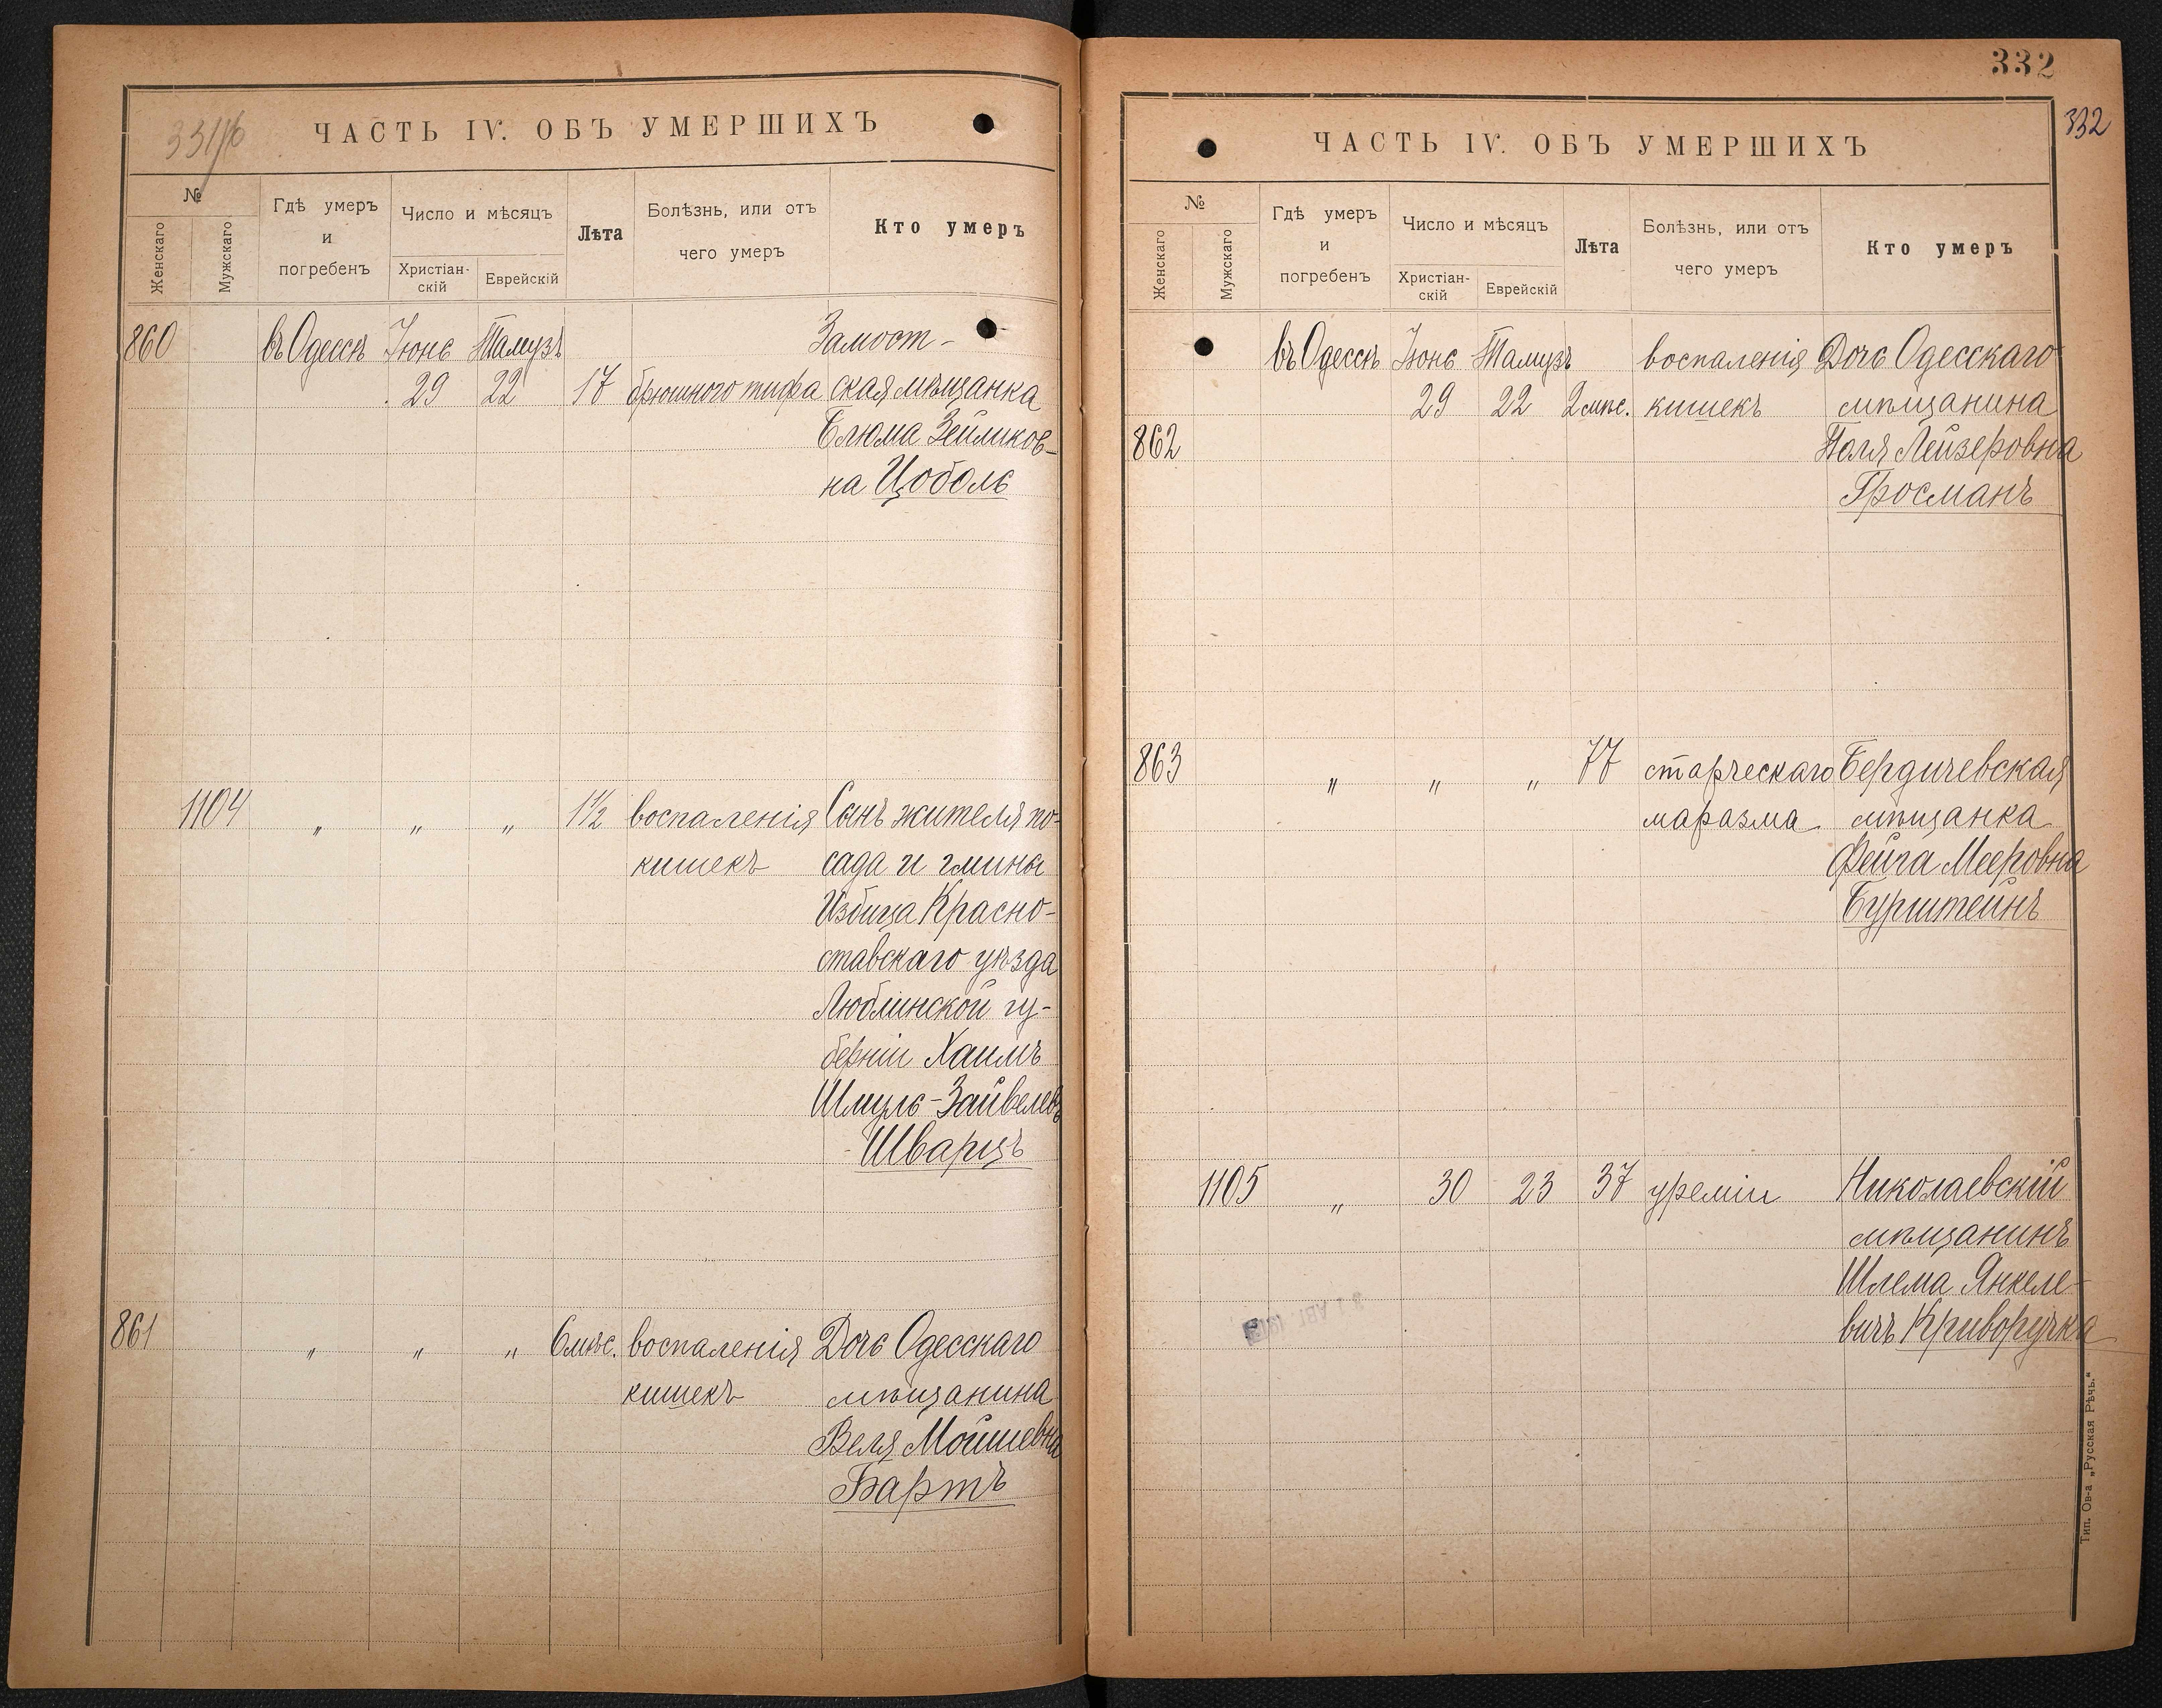 331/16
ЧАСТЬ IV. ОБЪ УМЕРШИХЪ
№
Женскаго
Мужскаго
Гдѣ умеръ
и
погребенъ
Число и мѣсяцъ
Христіан-
скій
Еврейскій
Лѣта
Болѣзнь, или отъ
чего умеръ
Кто умеръ
860 въ Одессѣ Іюнь Тамузъ Замост-
29 22 17 брюшного тифа ская мѣщанка
Блюма Зейликов-
на Цоболь
1104 " " " 1½ воспаленія Сынъ жителя по-
кишекъ сада и гмины
Избица Красно-
ставскаго уѣзда
Люблинской гу-
берніи Хаимъ
Шмуль-Зайвелевъ
Шварцъ
861 " " " 6 мѣс. воспаленія Дочь Одесскаго
кишекъ мѣщанина
Веля Мойшевна
Бартъ
332
332
ЧАСТЬ IV. ОБЪ УМЕРШИХЪ
№
Женскаго
Мужскаго
Гдѣ умеръ
и
погребенъ
Число и мѣсяцъ
Христіан-
скій
Еврейскій
Лѣта
Болѣзнь, или отъ
чего умеръ
Кто умеръ
въ Одессѣ Іюнь Тамузъ воспаленія Дочь Одесскаго
29 22 2 мѣс. кишекъ мѣщанина
862 Поля Лейзеровна
Гросманъ
863 " " " 77 старческаго Бердичевская
маразма мѣщанка
Фейга Мееровна
Бурштейнъ
1105 " 30 23 37 уреміи Николаевскій
мѣщанинъ
Шлема Янкеле-
вичъ Криворучка
Тип. Ов-а „Русская Рѣчь."